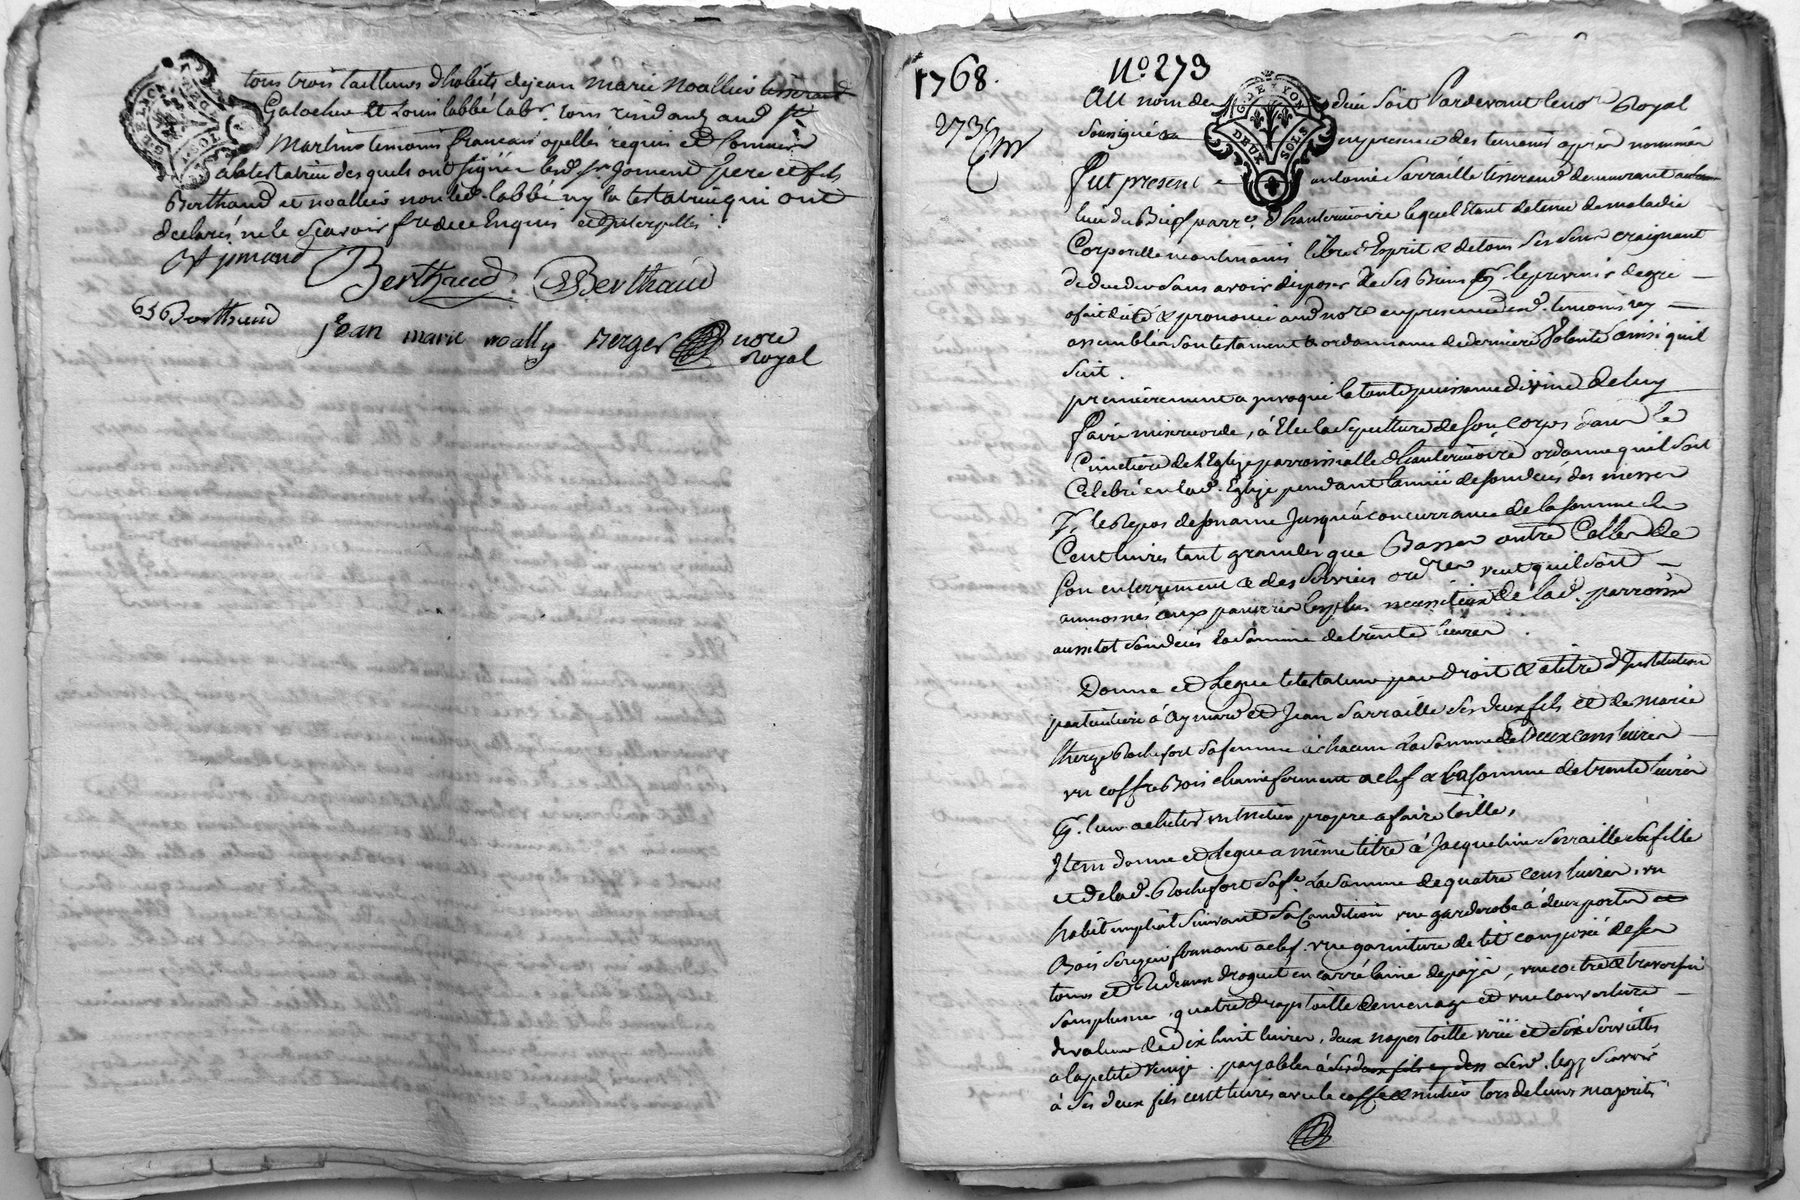 tous trois tailleurs d'habits de jean marie Noallier tisserand
Galocher et Louis labbé lab.r tous résidants aud st
Martin temoins francais apellés requis et
la testatrice desquels ont signé led sr joment pere et fils
Berthaud et noallier non led. labbé ny la testatrice qui ont
declarés ne le scavoir faire de ce Enquis et Interpellés.
Berthaud Berthaud
Berthaud
jean marie noally Berger nore
Royal
1768.
No 273
273e
Au nom de dieu soit Pardevant le nore Royal
soussigné en presence des temoins apres nommés
fut present antoine Sarraille tisserand demeurant au
lieu du Bief parr.e d'hauterivoire lequel Etant detenu de maladie
Corporelle neantmoins libre d'Esprit & de tous ses sens craignant
de deceder sans avoir disposé de ses Biens pr. le prevenir de gré
a fait dicté & prononcé aud nore en presence desd. temoins icy
assemblés son testament & ordonnance de derniere Volonté ainsi quil
suit.
premierement a invoqué la toute puissance divine de luy
faire misericorde, à Elu la sepulture de son corps dans le
Cimetiere de l'Eglize parroissialle d'hauterivoire ordonne quil soit
Celebré en lad. Eglize pendant l'année de son decés des messes
pr. le Repos de son ame jusqu'à concurrance de la somme de
Cent livres tant grandes que Basses outre Celles de
son enterrement & des services ordres veut quil soit
aumosné aux pauvres les plus necessiteux de lad. parroisse
aussitot son decés la somme de trente livres.
Donne et Legue le testateur par droit & a titre d'Institution
particuliere à Aymard et Jean Sarraille ses deux fils et de marie
therese Rochefort sa femme à chacun la somme de Deux cens livres
un coffre Bois chaine fermant a clef & la somme de trente livres
pr. leur acheter un metier propre a faire toille,
Item donne et Legue a même titre à Jacqueline Sarraille sa fille
et de lad. Rochefort sa fe. La somme de quatre cens livres, un
habit nuptial suivant sa Condition une garderobe à deux portes
Bois Serizier fermant a clef. une garniture de lit composée de ses
tours et Rideaux droguet en carré laine de pays, une coitre & traversin
sans plume, quatre draps toille de menage et une couverture
de valeur de dix huit livres, deux napes toille et six serviettes
a la petite Venize. payables à ses deux fils Sçavoir
à ses deux fils cent livres avec le coffre & metier lors de leurs majorité